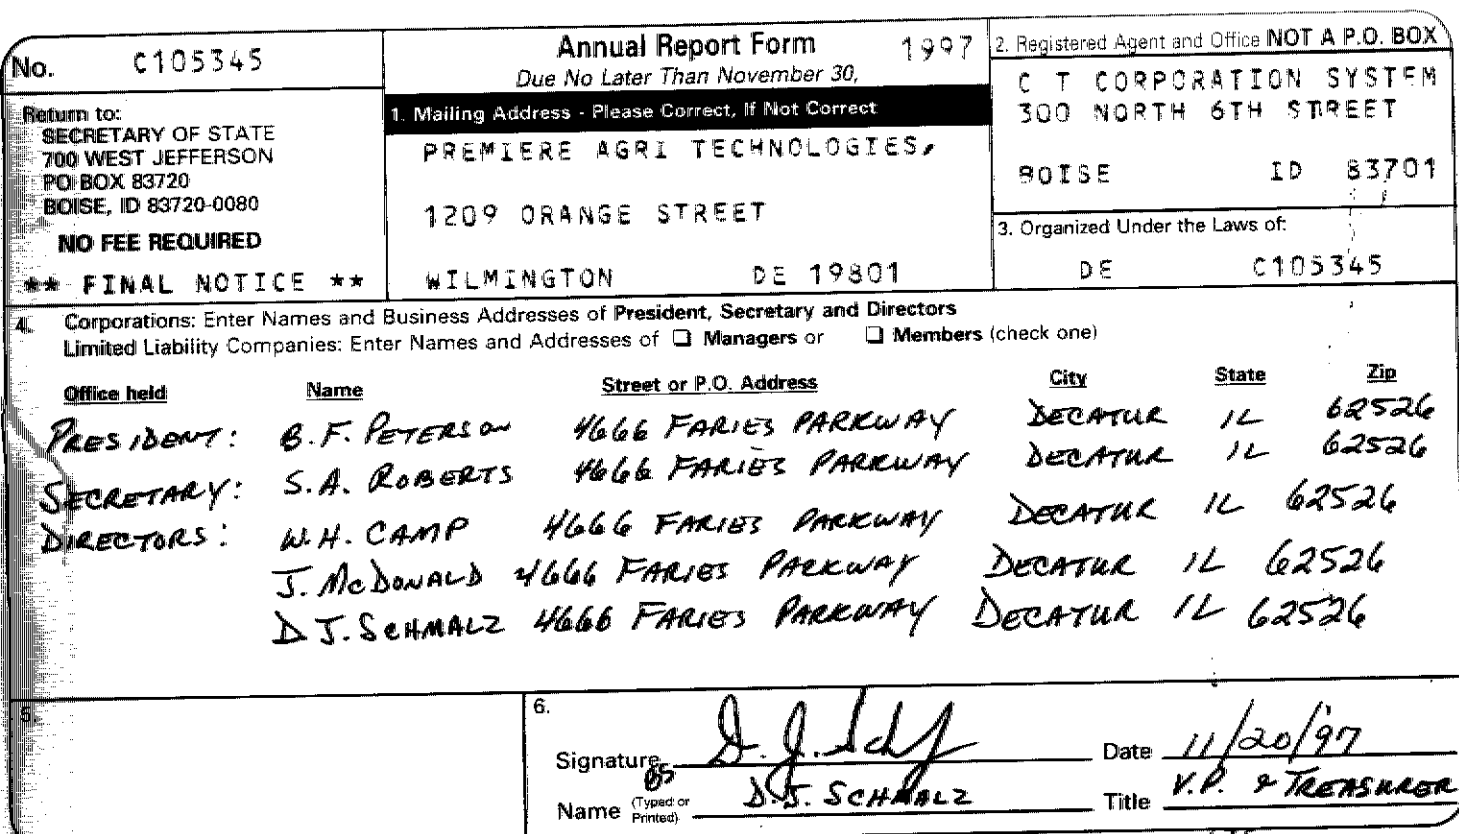 No. C105345
Return to:
SECRETARY OF STATE
700 WEST JEFFERSON
PO BOX 83720
BOISE, ID 83720-0080
NO FEE REQUIRED
** FINAL NOTICE **
Annual Report Form 1997
Due No Later Than November 30,
1. Mailing Address - Please Correct, If Not Correct
PREMIERE AGRI TECHNOLOGIES,
1209 ORANGE STREET
WILMINGTON DE 19801
2. Registered Agent and Office NOT A P.O. BOX
C T CORPORATION SYSTEM
300 NORTH 6TH STREET
BOISE ID 83701
3. Organized Under the Laws of:
DE C105345
4. Corporations: Enter Names and Business Addresses of President, Secretary and Directors
Limited Liability Companies: Enter Names and Addresses of ☐ Managers or ☐ Members (check one)
Office held Name Street or P.O. Address City State Zip
PRESIDENT: B.F. PETERSON 4666 FARIES PARKWAY DECATUR IL 62526
SECRETARY: S.A. ROBERTS 4666 FARIES PARKWAY DECATUR IL 62526
DIRECTORS: W.H. CAMP 4666 FARIES PARKWAY DECATUR IL 62526
J. McDONALD 4666 FARIES PARKWAY DECATUR IL 62526
D J. SCHMALZ 4666 FARIES PARKWAY DECATUR IL 62526
5.
6.
Signature D. J. Date 11/20/97
Name (Typed or Printed) D.J. SCHMALZ Title V.P. & TREASURER